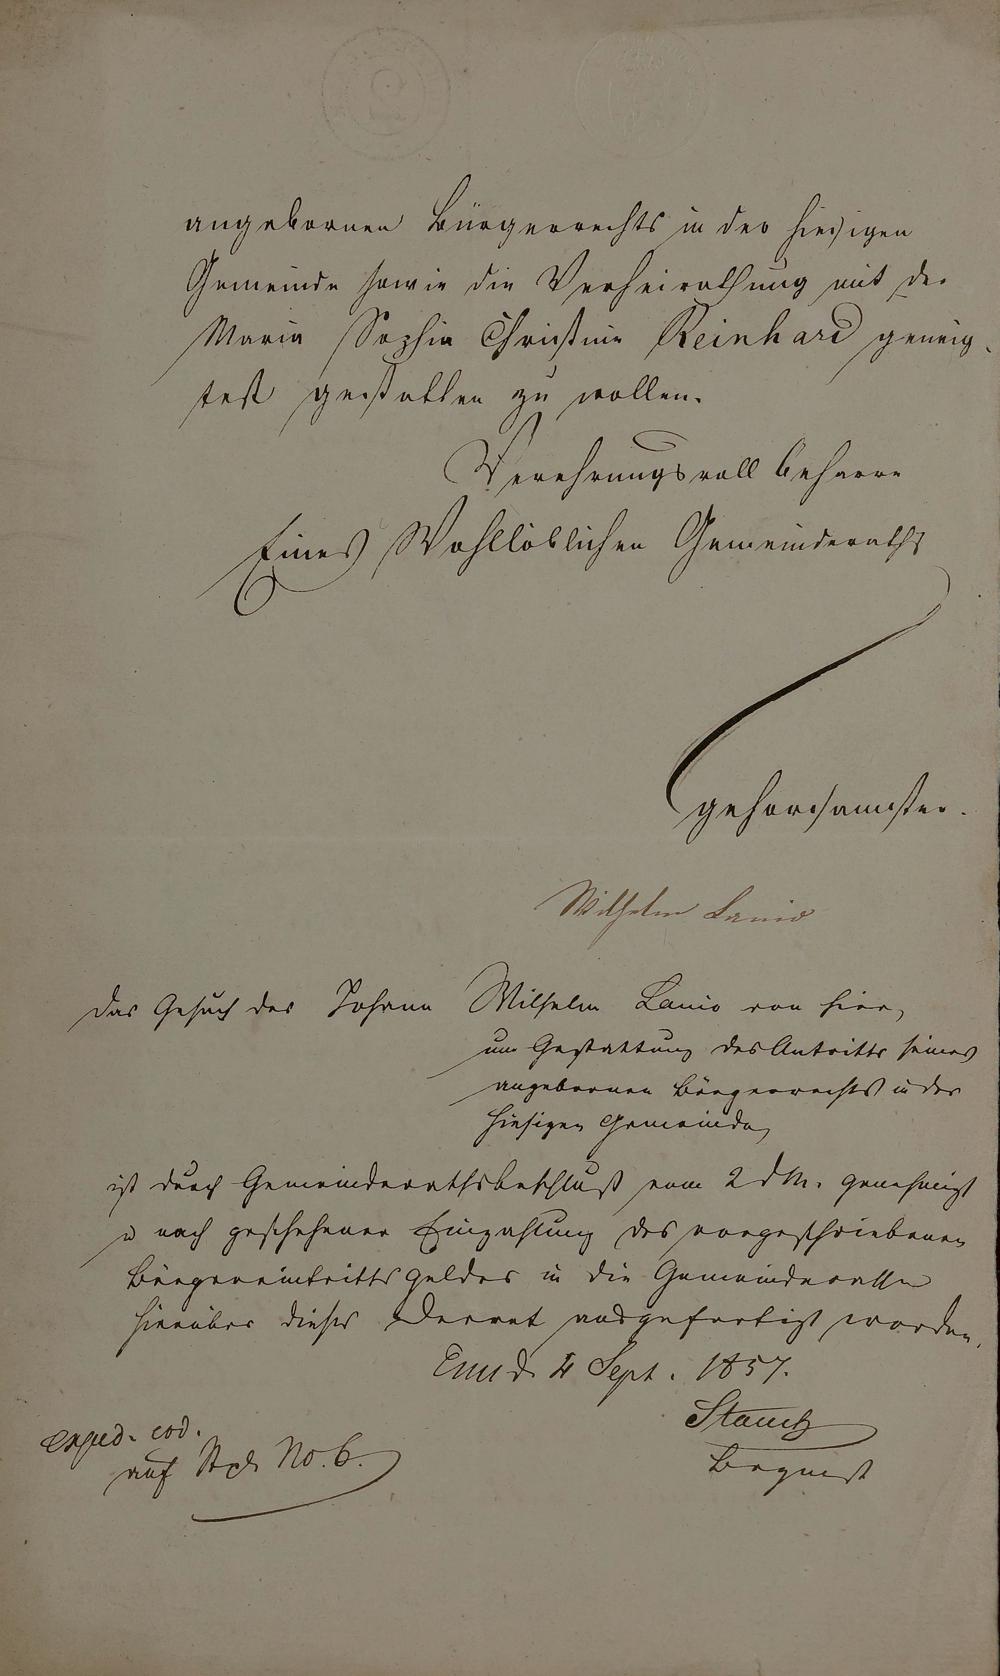 angebornen Bürgerrechts in der hiesigen
Gemeinde sowie die Verheirathung mit der
Maria Sophia Christine Reinhard geneig-
test gestatten zu wollen.
Verehrungsvoll beharre
Eines Wohllöblichen Gemeinderaths
gehorsamster.
Wilhelm Lanio
Das Gesuch des Johann Wilhelm Lanio von hier,
um Gestattung des Antritts seines
angebornen Bürgerrechts in der
hiesigen Gemeinde,
ist durch Gemeinderathsbeschluß vom 2 d M. genehmigt
u nach geschehener Einzahlung des vorgeschriebenen
Bürgereintrittsgeldes in die Gemeindecasse
hierüber dieses Decret ausgefertigt worden.
Ems d. 4 Sept. 1857.
exped. eod.
auf Stpl No. 6.
Bürgmst